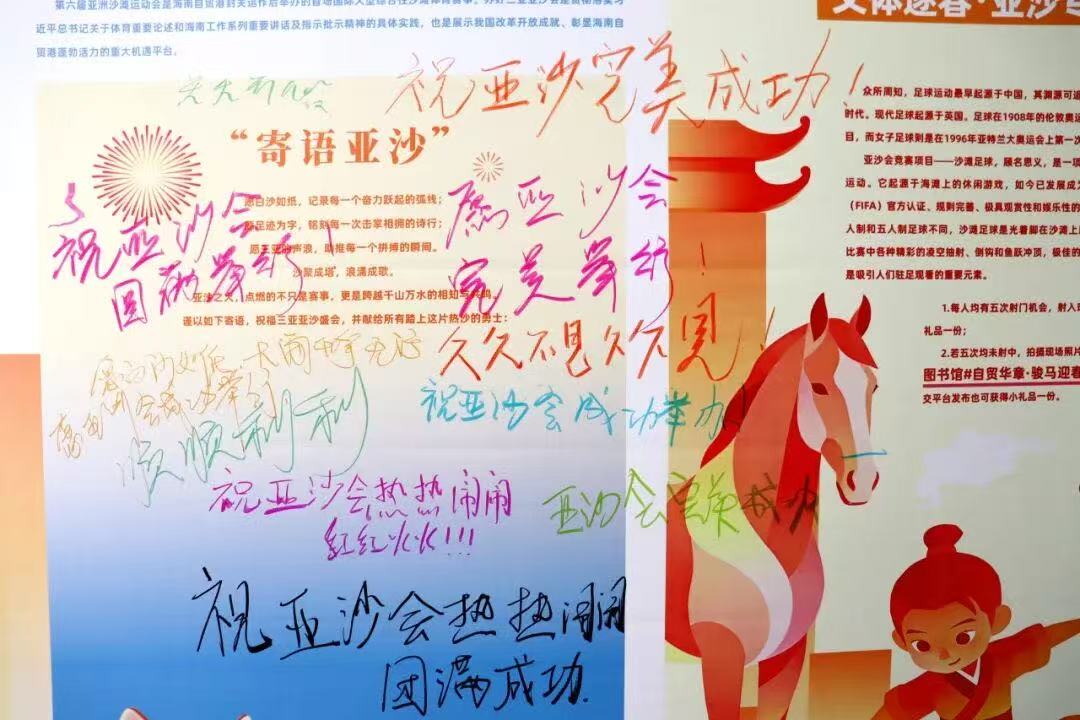 第六届亚洲沙滩运动会是海南自贸港封关运作后举办的首场国际大型综合性沙滩体育赛事。
近平总书记关于体育重要论述和海南工作系列重要讲话及指示批示精神的具体实践，也是展示我国改革开放成就、彰显海南自
贸港蓬勃活力的重大机遇平台。
祝亚沙完美成功！
“寄语亚沙”
愿白沙如纸，记录每一个奋力跃起的弧线；
足迹为字，铭刻每一次击掌相拥的诗行；
声浪，助推每一个拼搏的瞬间。
沙聚成塔，浪漫成歌。
亚沙之火，点燃的不只是赛事，更是跨越千山万水的相知与
谨以如下寄语，祝福三亚亚沙盛会，并献给所有踏上这片热沙的勇士：
祝亚沙会
圆满举行！
愿亚沙会
完美举行！
久久不见久久见！
祝亚沙会成功举办！
顺顺利利
祝亚沙会热热闹闹
红红火火!!!
亚沙会完美成功
祝亚沙会热热闹闹
团满成功.
文体逐春·亚沙
众所周知，足球运动最早起源于中国，其渊源可追
时代。现代足球起源于英国。足球在1908年的伦敦奥运
目，而女子足球则是在1996年亚特兰大奥运会上第一次
亚沙会竞赛项目——沙滩足球，顾名思义，是一项
运动。它起源于海滩上的休闲游戏，如今已发展成为
（FIFA）官方认证、规则完善、极具观赏性和娱乐性的
人制和五人制足球不同，沙滩足球是光着脚在沙滩上
比赛中各种精彩的凌空抽射、倒钩和鱼跃冲顶，极佳的
是吸引人们驻足观看的重要元素。
1.每人均有五次射门机会，射入
礼品一份；
2.若五次均未射中，拍摄现场照片
图书馆#自贸华章·骏马迎春
交平台发布也可获得小礼品一份。